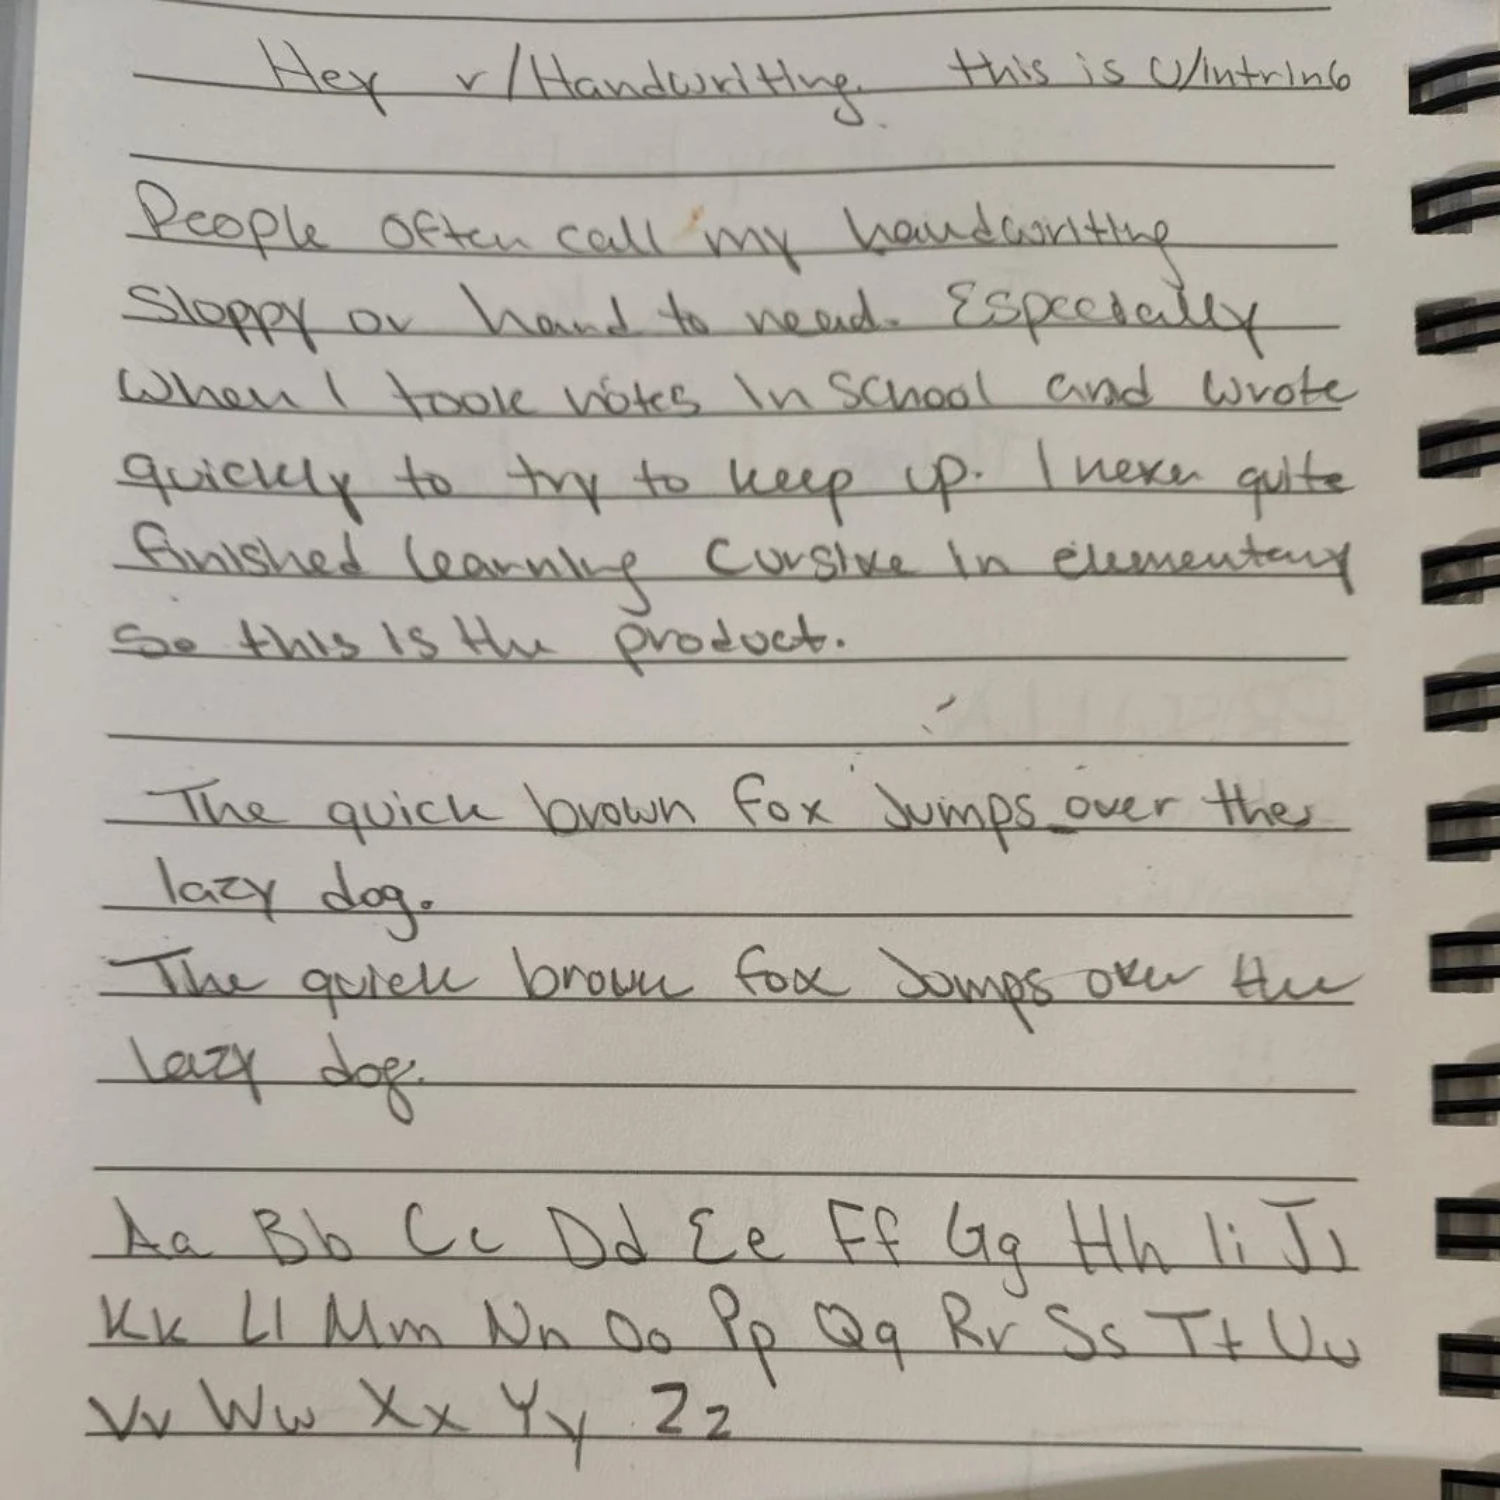 Hey r/Handwriting. this is u/intrin6
People often call my handwriting
Sloppy or hard to read. Especially
When I took notes in School and wrote
quickly to try to keep up. I never quite
finished learning Cursive in elementary
So this is the product.
The quick brown fox Jumps over the
lazy dog.
The quick brown fox Jumps over the
lazy dog.
Aa Bb Cc Dd Ee Ff Gg Hh Ii Jj
Kk Ll Mm Nn Oo Pp Qq Rr Ss Tt Uu
Vv Ww Xx Yy Zz